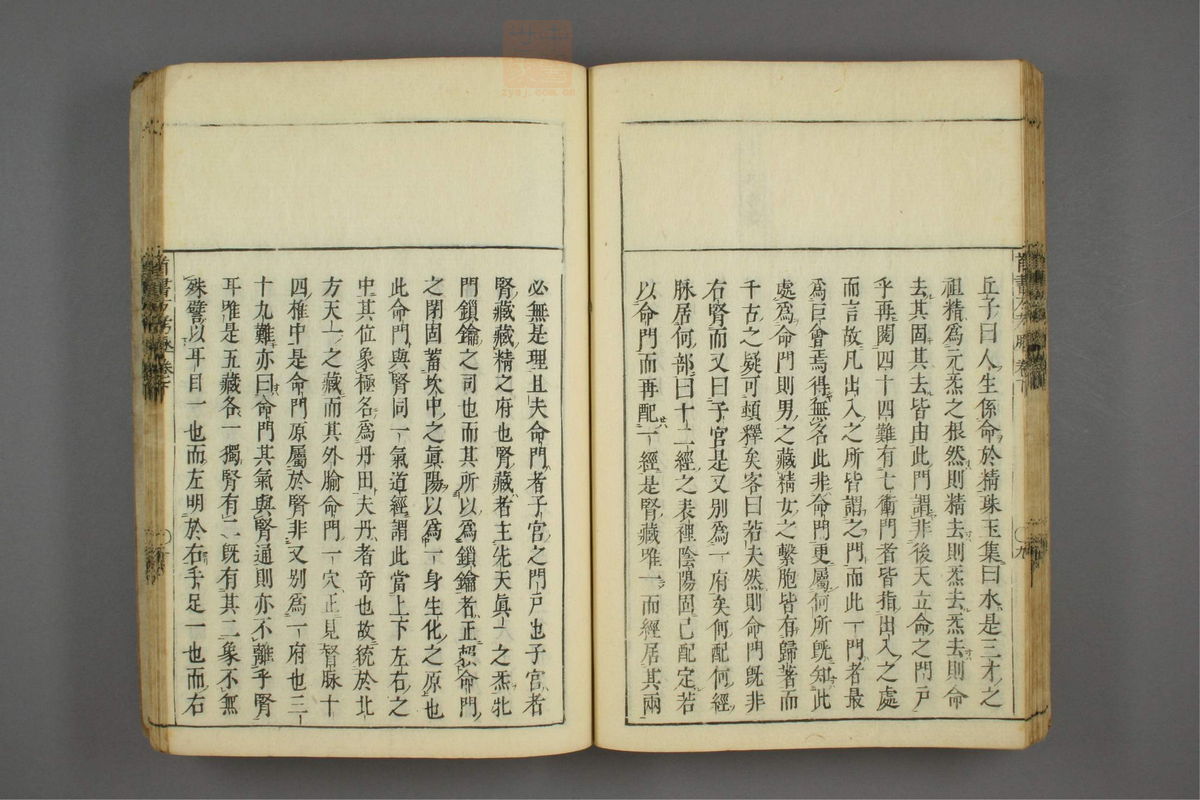 丘子曰人生係命於精珠玉集曰水是三才之
祖精爲元炁之根然則精去則炁去炁去則命
去其固其去皆由此門謂非後天立命之門戶
乎再閱四十四難有七衝門者皆指出入之處
而言故凡出入之所皆謂之門而此一門者最
爲巨會焉得無名此非命門更屬何所旣知此
處爲命門則男之藏精女之繫胞皆有歸著而
千古之疑可頓釋矣客曰若夫然則命門旣非
右腎而又曰子宮是又別爲一府矣何配何經
脉居何部曰十二經之表裡陰陽固已配定若
以命門而再配一經是腎藏唯一而經居其兩
必無是理且夫命門者子宮之門戶也子宮者
腎藏藏精之府也腎藏者主先天眞一之炁牝
門鎖鑰之司也而其所以爲鎖鑰者正恕命門
之閉固蓄坎中之眞陽以爲一身生化之原也
此命門與腎同一氣道經謂此當上下左右之
中其位象極名爲丹田夫丹者竒也故統於北
方天一之藏而其外腧命門一穴正見督脉十
四椎中是命門原屬於腎非又别爲一府也三
十九難亦曰命門其氣與腎通則亦不離乎腎
耳唯是五藏各一獨腎有二旣有其二象不無
殊譬以耳目一也而左明於右手足一也而右